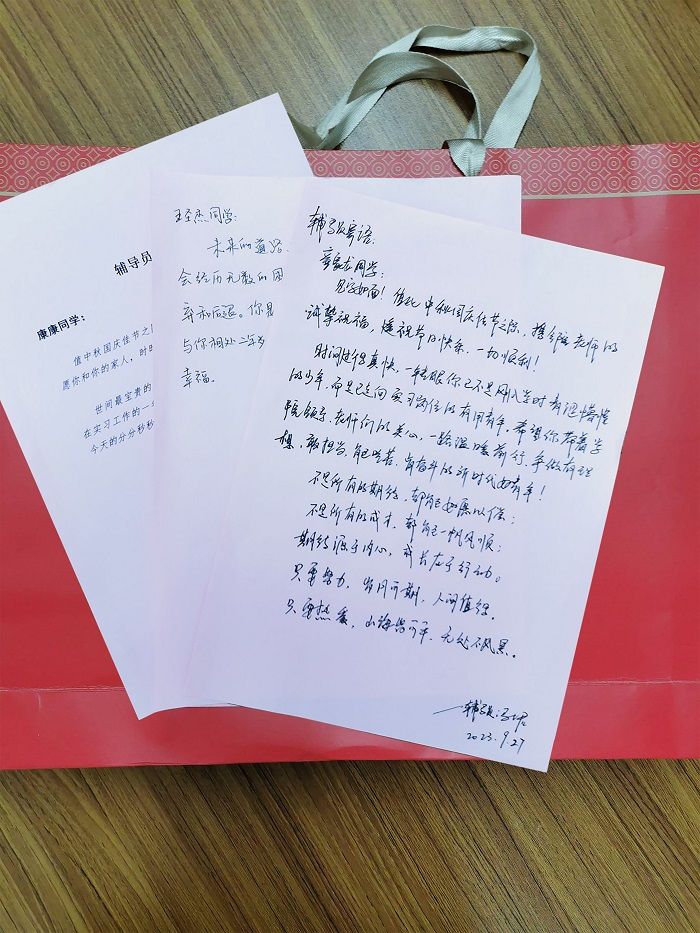 辅导员
康康同学：
值中秋国庆佳节之
愿你和你的家人，时时
世间最宝贵的
在实习工作的一
今天的分分秒秒
同学：
未来的道路
会经历无数的困
弃和后退。你是
与你相处
幸福。
辅导员寄语：
同学：
见字如面！值此中秋国庆佳节之际，携全院老师的
诚挚祝福，遥祝节日快乐，一切顺利！
时间过得真快，一转眼你已不是刚入学时青涩懵懂
的少年，而是已走向实习岗位的有用青年，希望你带着学
院领导、老师们的关心，一路温暖前行，争做有理
想、敢担当、能吃苦、肯奋斗的新时代好青年！
不是所有的期待，都能如愿以偿；
不是所有的成长，都能一帆风顺；
期待源于内心，成长在于行动。
只要努力，岁月可期，人间值得。
只要热爱，山海皆可平，无处不风景。
—辅导员：冯
2023.9.27